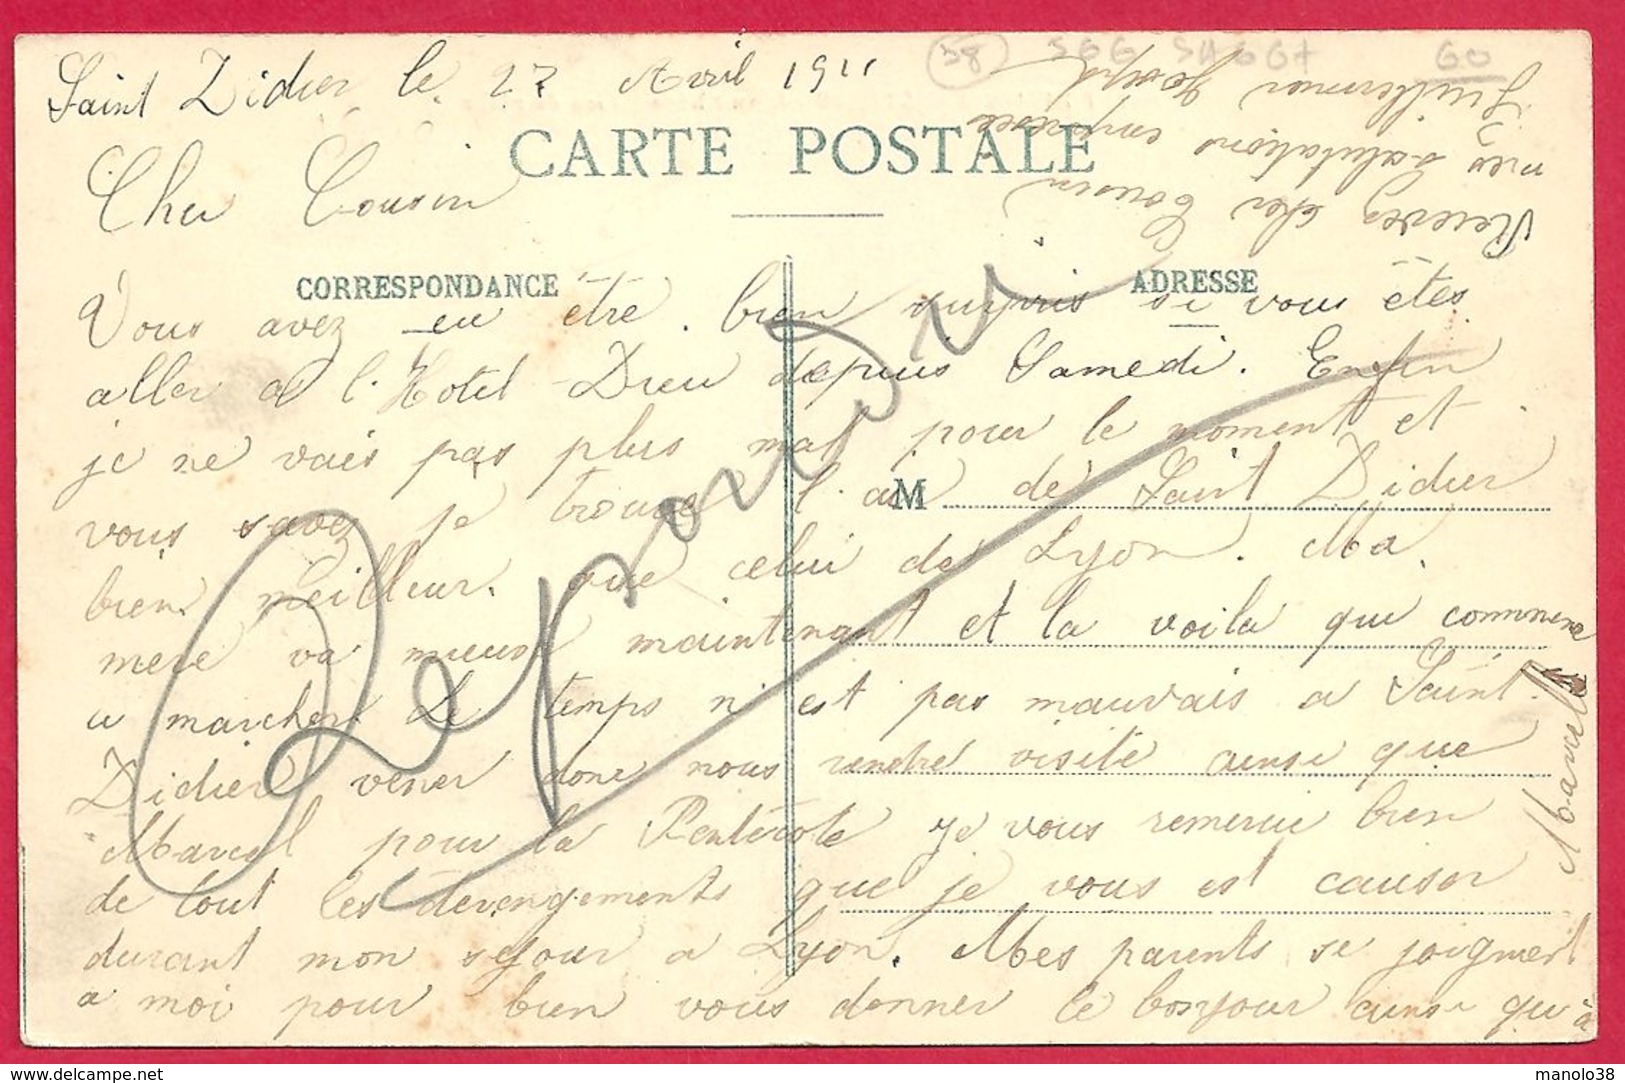 Saint Didier le 27 Avril 1911
CARTE POSTALE
Cher Cousin
CORRESPONDANCE
ADRESSE
Vous avez eu être bien surpris si vous êtes
aller a l'Hotel Dieu depuis Samedi. Enfin
je ne vais pas plus mal pour le moment et
vous savez je trouve l'air de Saint Didier
M
bien meilleur. que celui de Lyon. Ma
mere va mieux maintenant et la voila qui commence
a marcher. Le temps n'est pas mauvais a Saint
Didier vener donc nous rendre visite ainsi que
Marcel pour la Pentecote je vous remercie bien
de tout les derengements que je vous est causer
durant mon sejour a Lyon. Mes parents se joignent
a moi pour bien vous donner le bonjour ainsi qu'à
Marcel
Recevez cher Cousin
mes salutations empressées
Joseph
Repondu
38
60
www.delcampe.net
manolo38